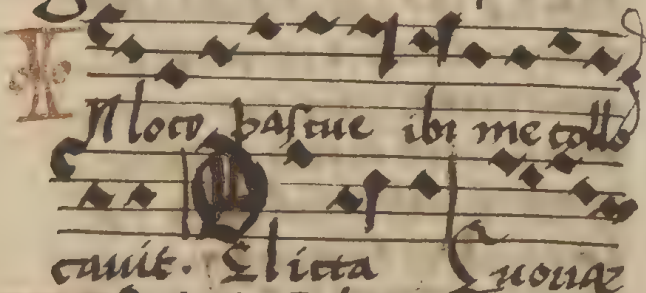 IN loco pascue ibi me collo
cavit. Delicta Quoniã